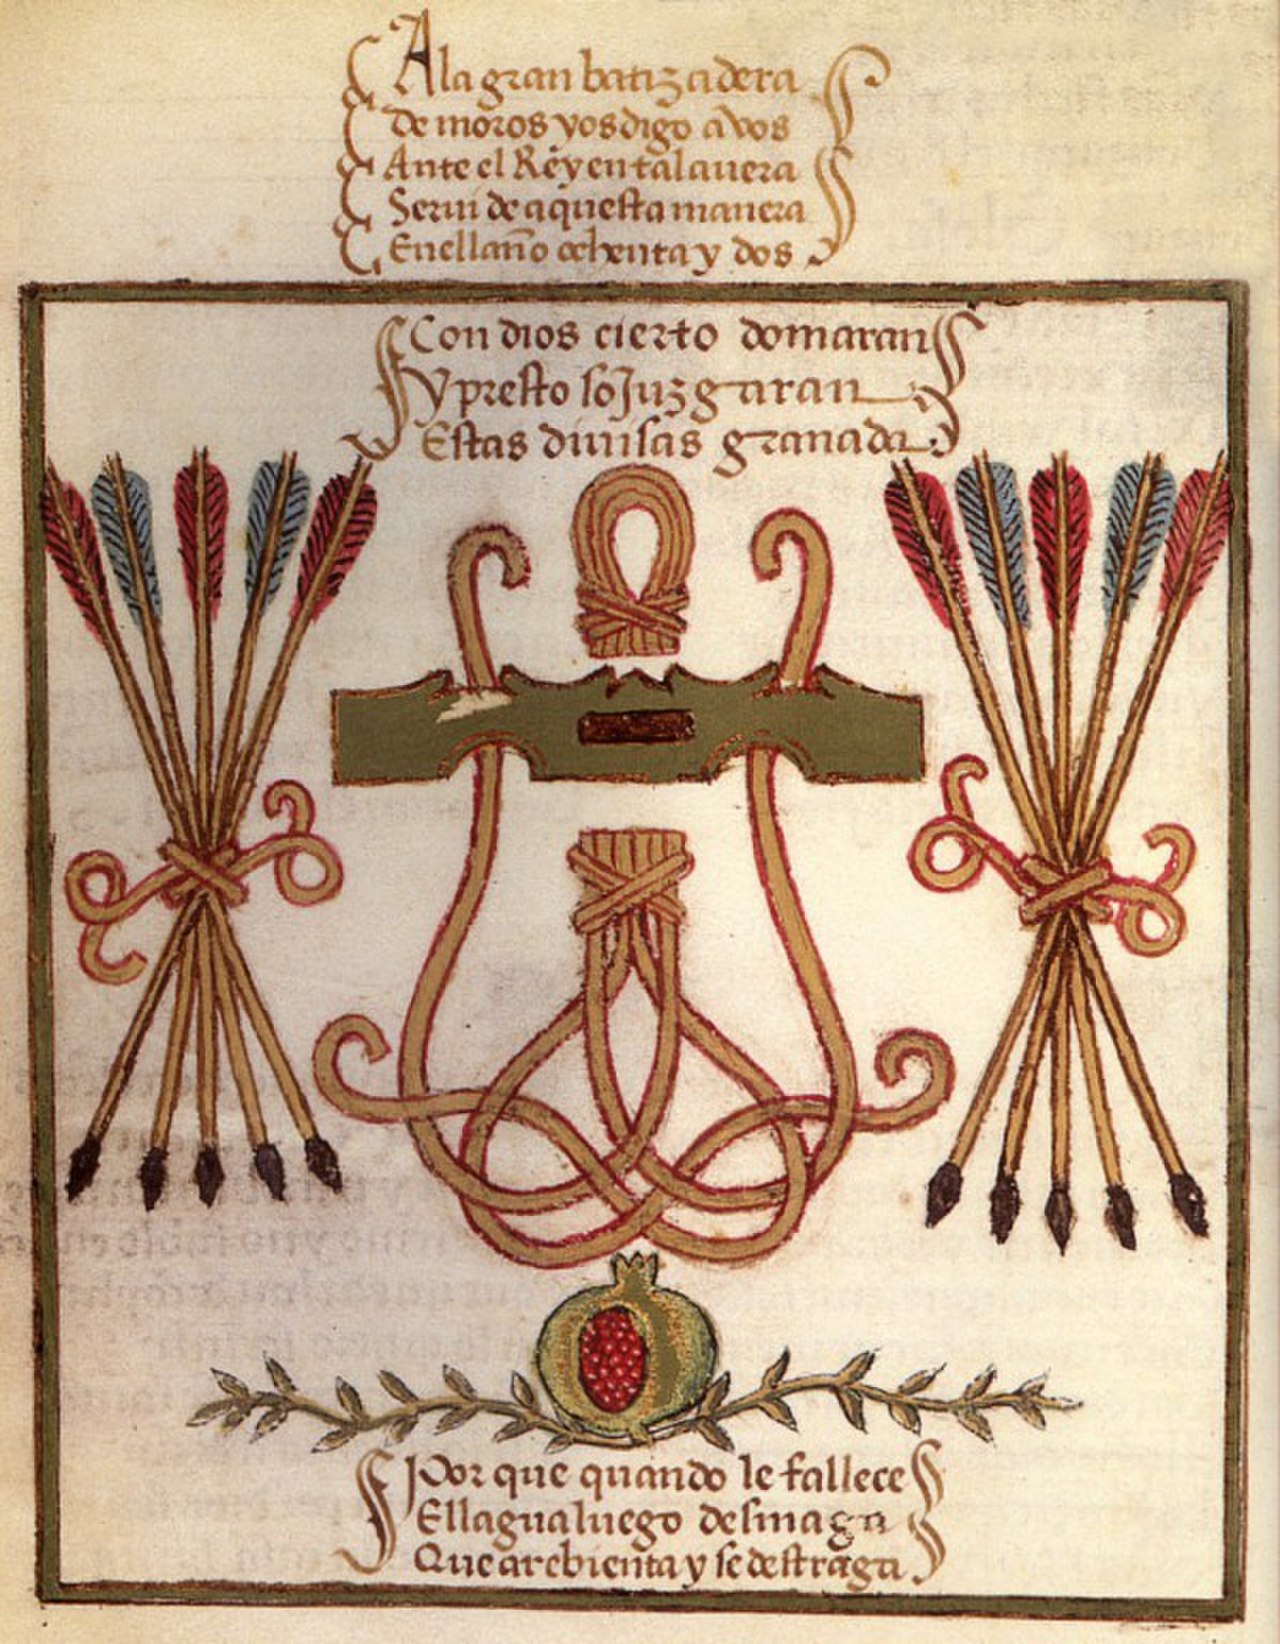 A la gran batizadera
de moros yos digo a vos
Ante el Rey en talauera
Serui de aquesta manera
En ell año ochenta y dos
Con dios cierto domaran
y presto soJuzgaran
Estas diuisas granada
Por que quando le fallece
Ell agua luego desmaga
Que arebienta y se destraga